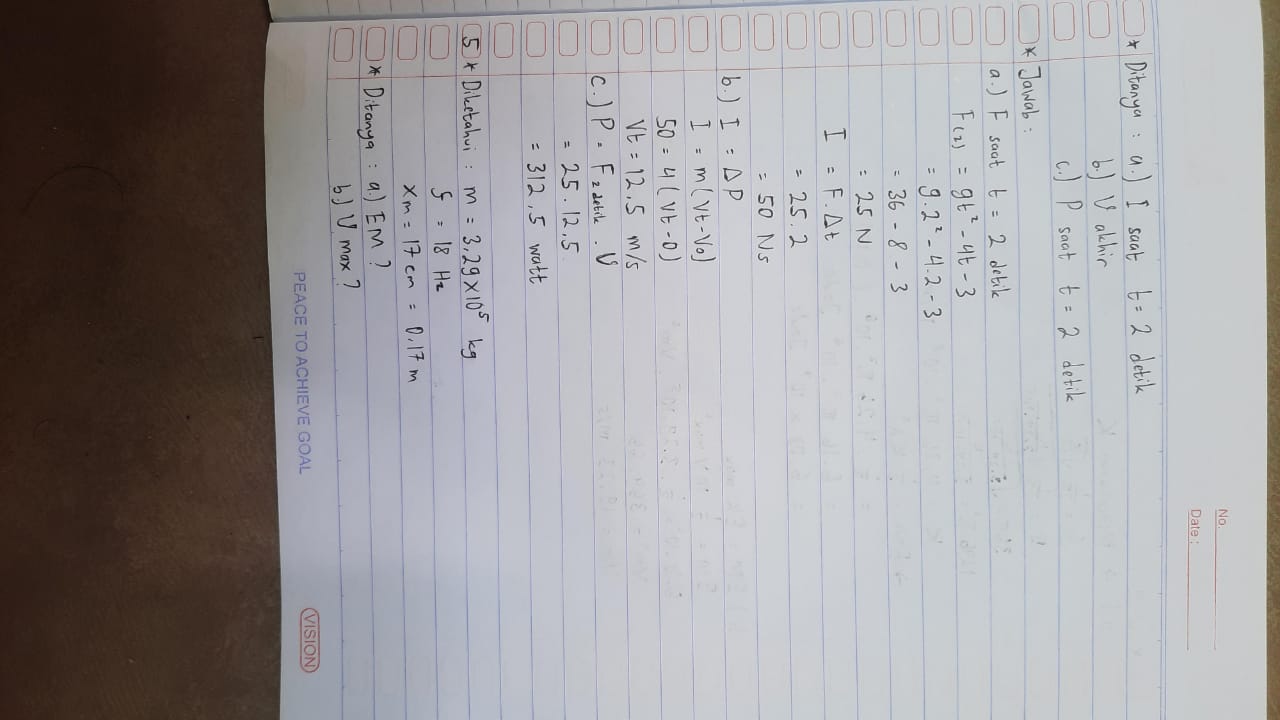 No.
Date :
* Ditanya : a.) I saat t = 2 detik
b.) V akhir
c.) P saat t = 2 detik
* Jawab :
a.) F saat t = 2 detik
F(2) = 9t² - 4t - 3
= 9.2² - 4.2 - 3
= 36 - 8 - 3
= 25 N
I = F.Δt
= 25.2
= 50 Ns
b.) I = ΔP
I = m(Vt-Vo)
50 = 4(Vt-0)
Vt = 12,5 m/s
c.) P = F2 detik . V
= 25 . 12,5
= 312,5 watt
5 * Diketahui : m = 3,29 x 10⁵ kg
f = 18 Hz
xm = 17 cm = 0,17 m
* Ditanya : a.) EM ?
b.) V max ?
PEACE TO ACHIEVE GOAL
VISION